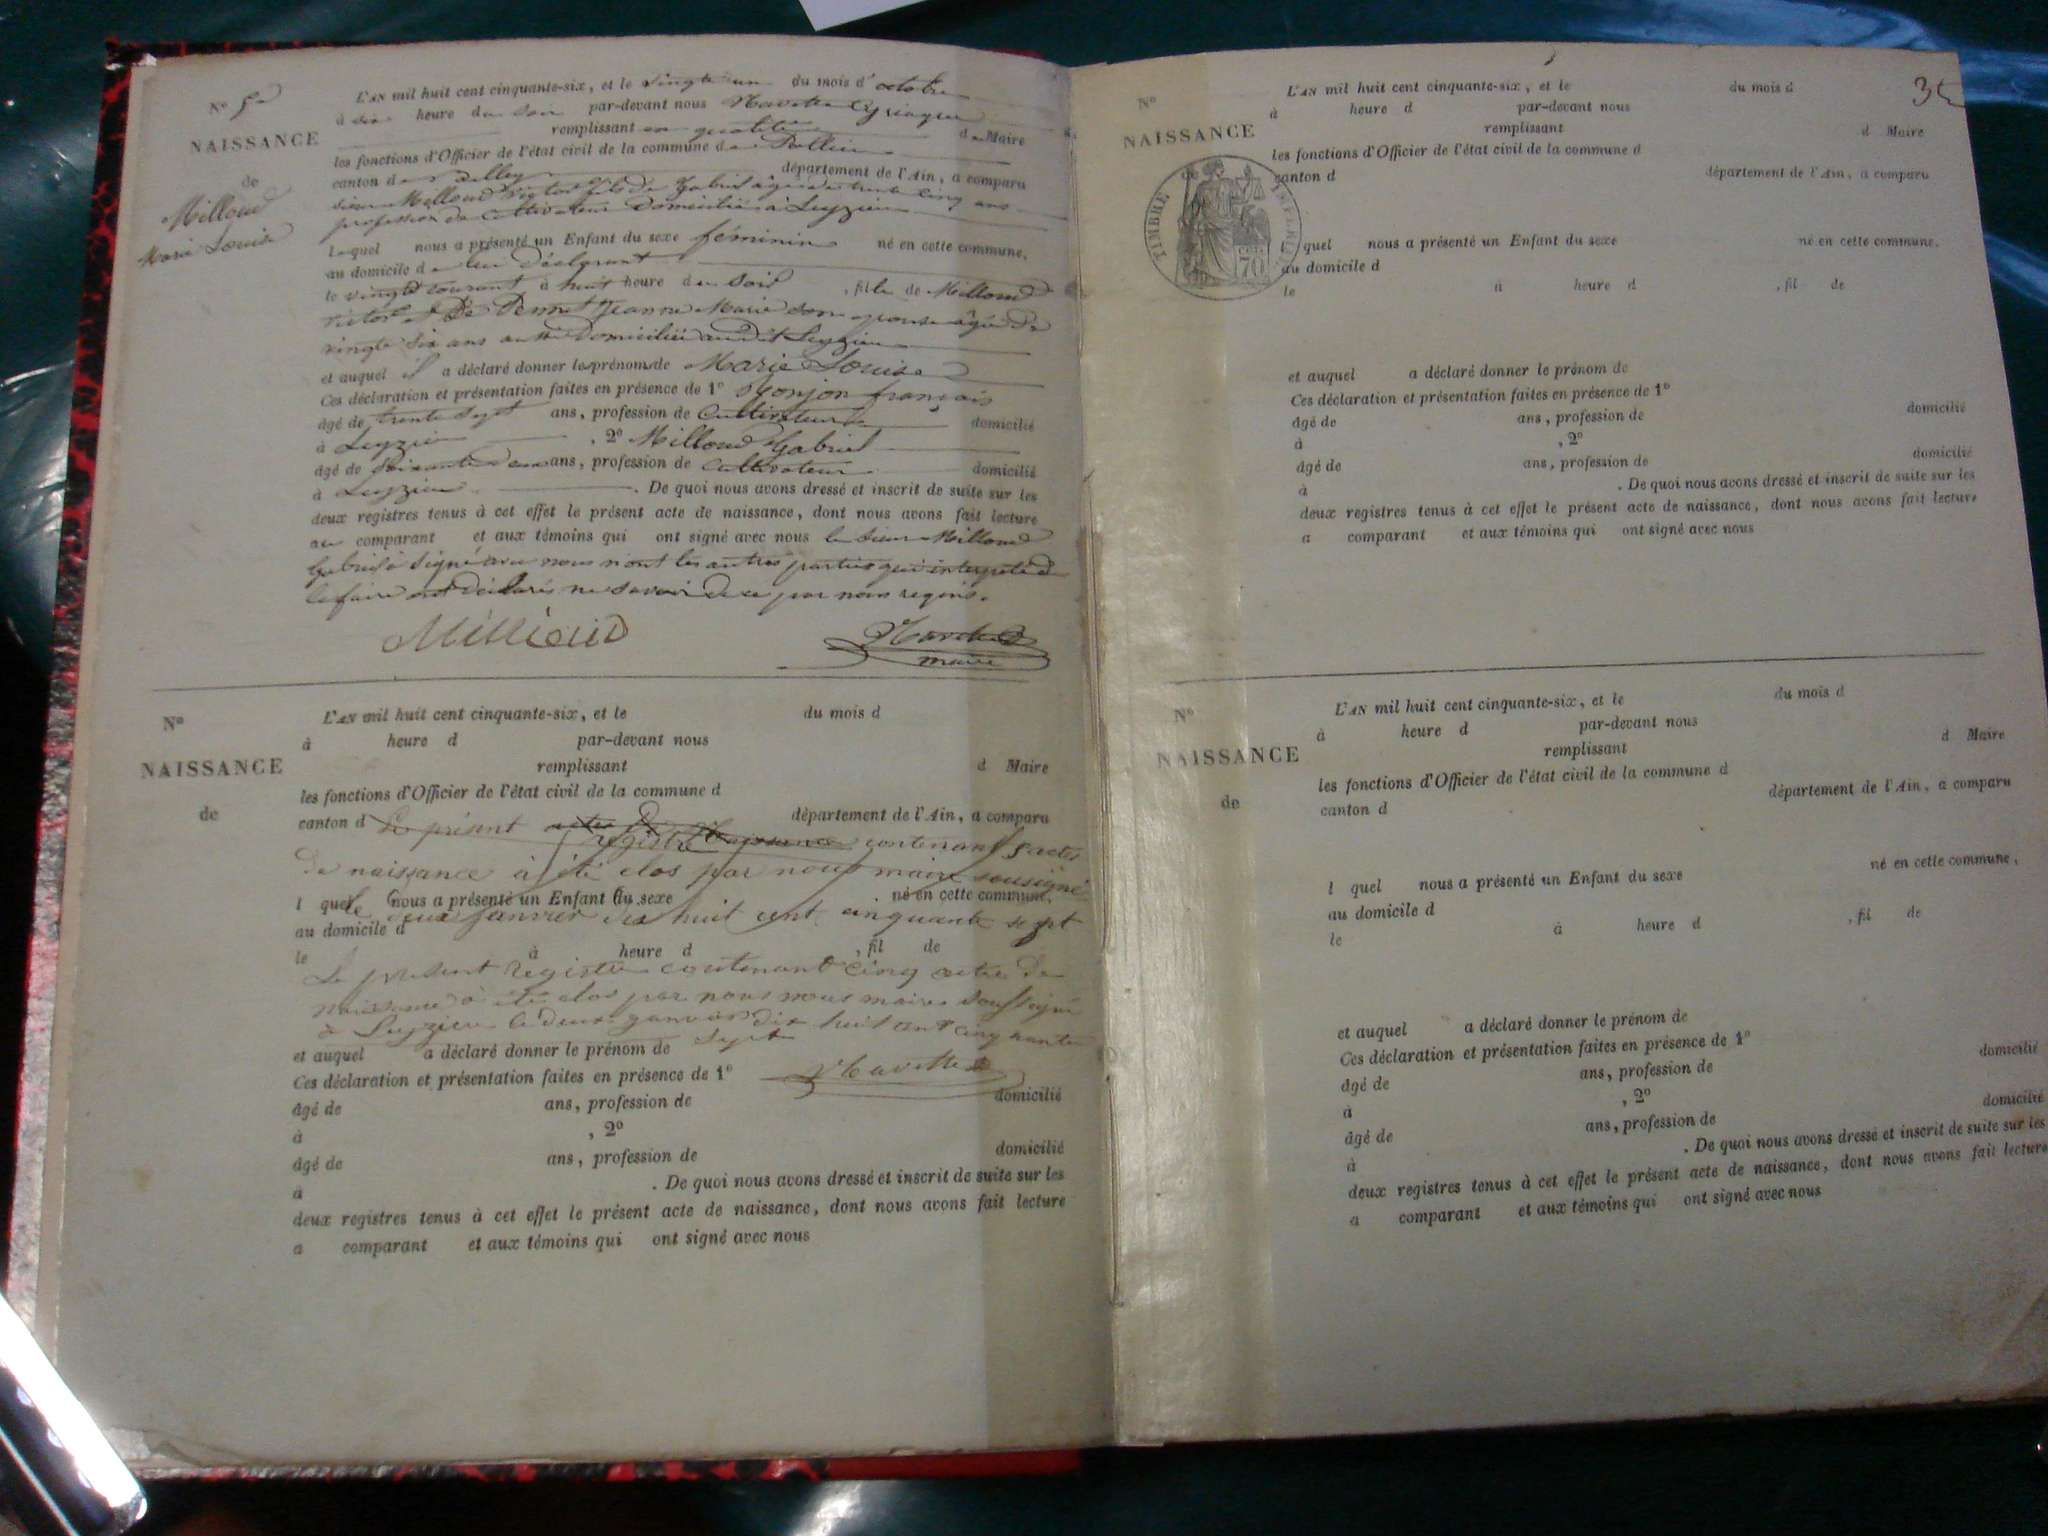 No 5
NAISSANCE
de
Milloud
Marie Louise
L'AN mil huit cent cinquante-six, et le vingt un du mois d'octobre
à six heure du soir par-devant nous
remplissant en qualité de Maire
les fonctions d'Officier de l'état civil de la commune de
canton de département de l'Ain, a comparu
sieur Milloud Victor fils de Gabriel âgé de trente cinq ans
profession de cultivateur domicilié à Luyzieu
lequel nous a présenté un Enfant du sexe féminin né en cette commune,
au domicile de
le vingt courant à huit heure du soir, fille de Milloud
Victor et De Jeanne Marie son épouse âgée de
vingt six ans domiciliée Luyzieu
et auquel il a déclaré donner les prénom de Marie Louise
Ces déclaration et présentation faites en présence de 1° Gonjon français
âgé de trente sept ans, profession de Cultivateur domicilié
à Luyzieu, 2° Milloud Gabriel
âgé de soixante deux ans, profession de Cultivateur domicilié
à Luyzieu. De quoi nous avons dressé et inscrit de suite sur les
deux registres tenus à cet effet le présent acte de naissance, dont nous avons fait lecture
au comparant et aux témoins qui ont signé avec nous le sieur Milloud
Gabriel a signé avec nous non les autres parties qui de
le faire ont déclarés ne savoir de ce par nous requis.
Milloud
maire
No
NAISSANCE
de
L'AN mil huit cent cinquante-six, et le du mois d
à heure d par-devant nous
remplissant d Maire
les fonctions d'Officier de l'état civil de la commune d
canton d département de l'Ain, a comparu
Le présent registre contenant 5 actes
De naissance à été clos par nous maire soussigné
l quel nous a présenté un Enfant du sexe né en cette commune,
le deux janvier dix huit cent cinquante sept
au domicile d
le à heure d, fil de
Le présent registre contenant cinq acte de
naissance à été clos par nous nous maire soussigné
à Luyzieu le deux janvier dix huit cent cinquante
sept
et auquel a déclaré donner le prénom de
Ces déclaration et présentation faites en présence de 1°
âgé de ans, profession de domicilié
à, 2°
âgé de ans, profession de domicilié
à. De quoi nous avons dressé et inscrit de suite sur les
deux registres tenus à cet effet le présent acte de naissance, dont nous avons fait lecture
a comparant et aux témoins qui ont signé avec nous
No
NAISSANCE
TIMBRE IMPERIAL
70
L'AN mil huit cent cinquante-six, et le du mois d
à heure d par-devant nous
remplissant d Maire
les fonctions d'Officier de l'état civil de la commune d
canton d département de l'Ain, a comparu
quel nous a présenté un Enfant du sexe né en cette commune,
au domicile d
le à heure d, fil de
et auquel a déclaré donner le prénom de
Ces déclaration et présentation faites en présence de 1°
âgé de ans, profession de domicilié
à, 2°
âgé de ans, profession de domicilié
à. De quoi nous avons dressé et inscrit de suite sur les
deux registres tenus à cet effet le présent acte de naissance, dont nous avons fait lecture
a comparant et aux témoins qui ont signé avec nous
No
NAISSANCE
de
L'AN mil huit cent cinquante-six, et le du mois d
à heure d par-devant nous
remplissant d Maire
les fonctions d'Officier de l'état civil de la commune d
canton d département de l'Ain, a comparu
l quel nous a présenté un Enfant du sexe né en cette commune,
au domicile d
le à heure d, fil de
et auquel a déclaré donner le prénom de
Ces déclaration et présentation faites en présence de 1°
âgé de ans, profession de domicilié
à, 2°
âgé de ans, profession de domicilié
à. De quoi nous avons dressé et inscrit de suite sur les
deux registres tenus à cet effet le présent acte de naissance, dont nous avons fait lecture
a comparant et aux témoins qui ont signé avec nous